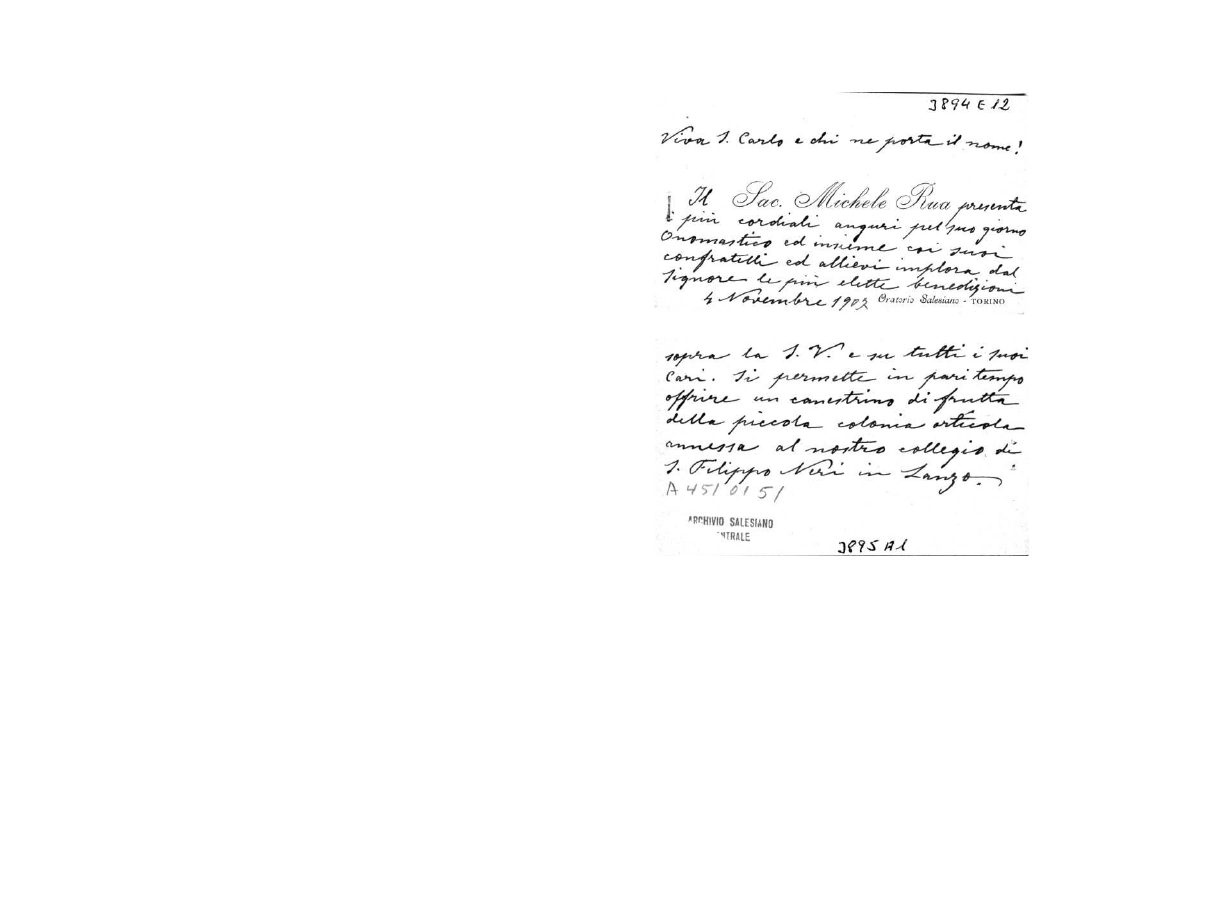 3894 E 12
Viva S. Carlo e chi ne porta il nome!
Il Sac. Michele Rua presenta
i più cordiali auguri pel suo giorno
Onomastico ed insieme coi suoi
confratelli ed allievi implora dal
Signore le più elette benedizioni
4 Novembre 1902 Oratorio Salesiano - TORINO
sopra la S. V. e su tutti i suoi
Cari. Si permette in pari tempo
offrire un canestrino di frutta
della piccola colonia orticola
annessa al nostro collegio di
S. Filippo Neri in Lanzo.
A 451 01 51
ARCHIVIO SALESIANO
NTRALE
3895 A1